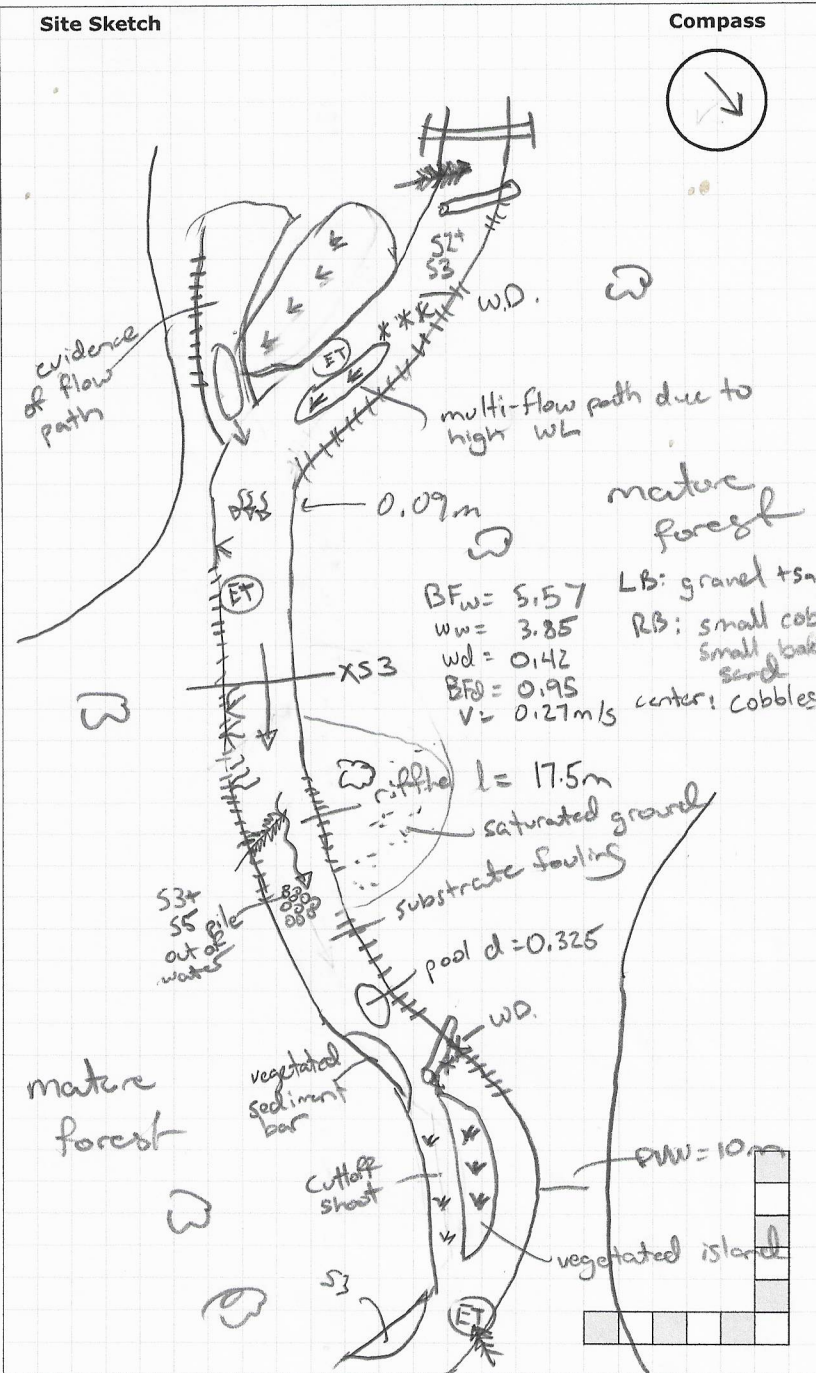 Site Sketch
Compass
S2+
S3
W.D.
evidence
of flow
path
ET
multi-flow path due to
high WL
0.09m
mature
forest
ET
BFw= 5.57
ww= 3.85
wd = 0.42
BFd = 0.95
V= 0.27m/s
LB: gravel +sa
RB: small cob
small
sand
center: cobbles
XS3
riffhe l= 17.5m
saturated ground
substrate fouling
S3+
S5 pile
out of
water
pool d=0.325
WD.
vegetated
sediment
bar
mature
forest
Cuttoff
shoot
= 10m
vegetated island
S3
ET